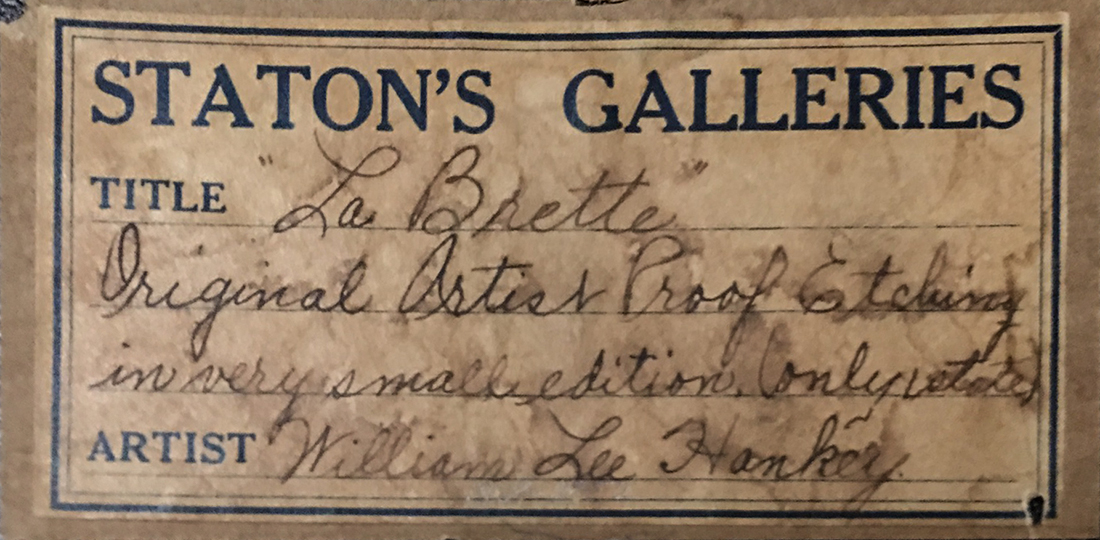 STATON'S GALLERIES
TITLE "La Brette"
Original Artist Proof Etching
in very small edition. (only state)
ARTIST William Lee Hankey.